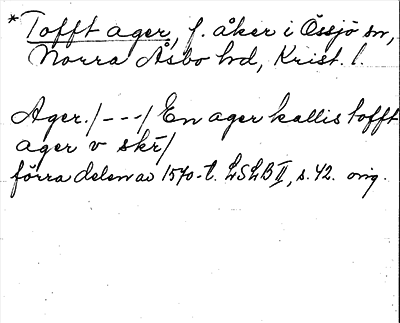 *Tofft ager, f. åker i Össjö sn,
Norra Åsbo hd, Krist. l.
Ager./---/ En ager kallis tofft
ager v skr̄/
förra delen av 1570-t. LSLB II, s. 42. orig.